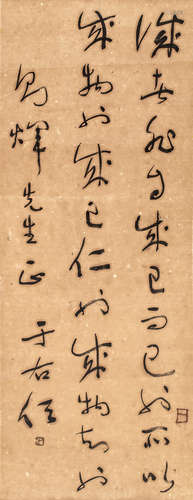 誠者非自成己而已也所以
成物也成己仁也成物知也
兆煇先生正
于右任